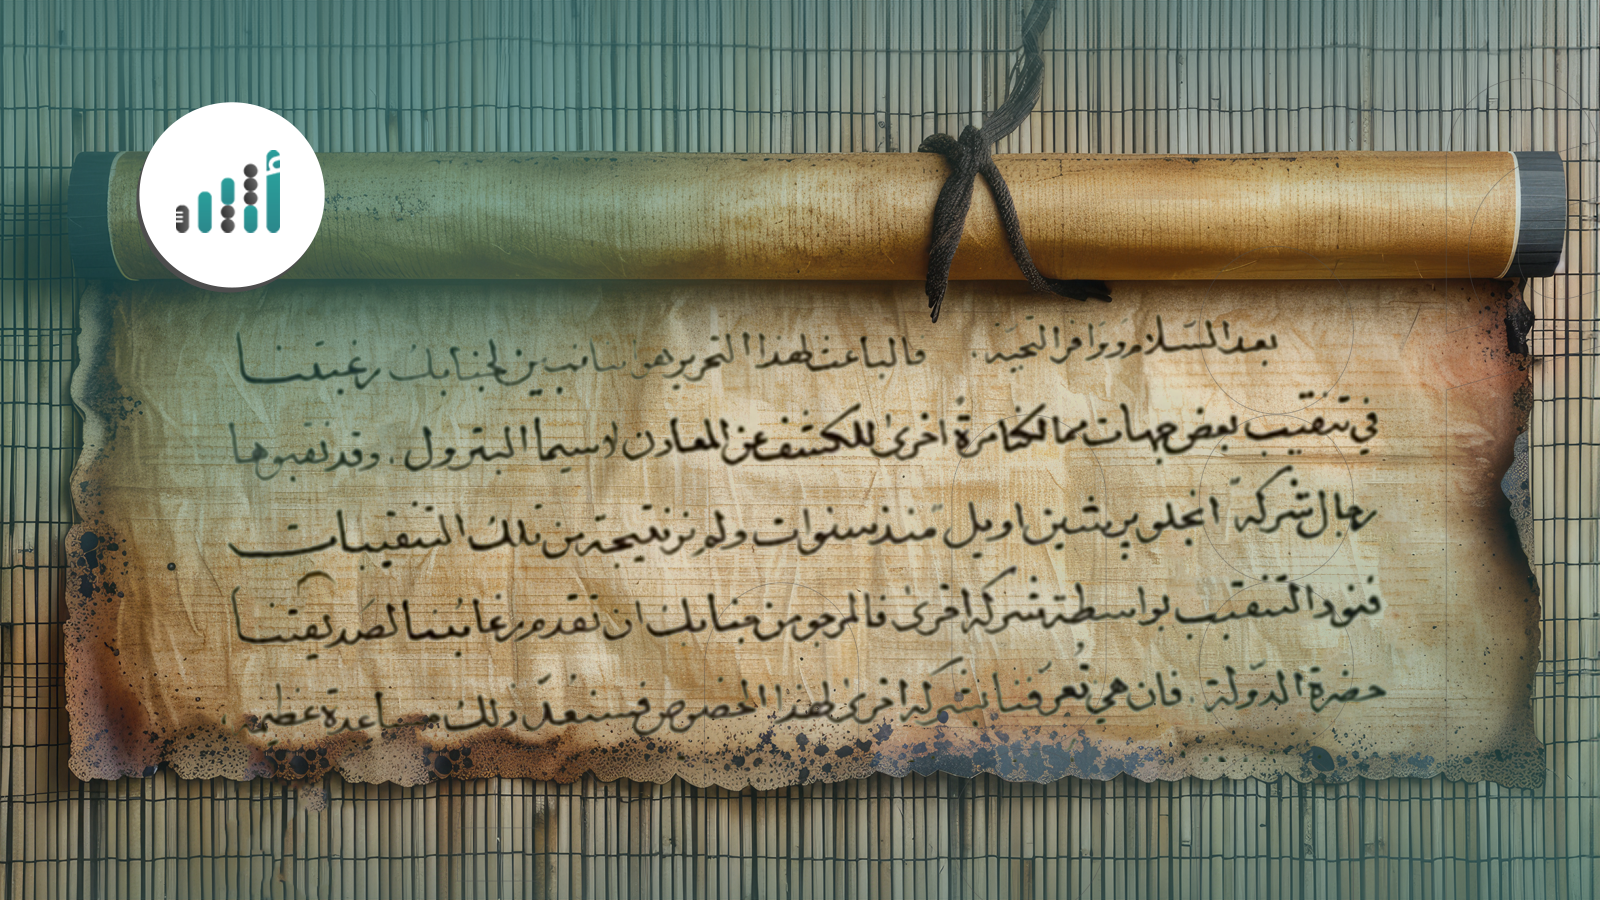 بعد السلام ووافر التحية. فالباعث لهذا التحرير هو بيان لجنابك رغبتنا
في تنقيب بعض جهات مملكتنا مرة اخرى للكشف عن المعادن لاسيما البترول. وقد نقبوها
رجال شركة انجلو پرشين اويل منذ سنوات ولم نر نتيجة من تلك التنقيبات
فنود التنقيب بواسطة شركة اخرى فالمرجو من جنابك ان تقدم رغائبنا لصديقتنا
حضرة الدولة. فان هي تعرفنا بشركة اخرى لهذا الخصوص فسنعدّ ذلك مساعدة عظيمة